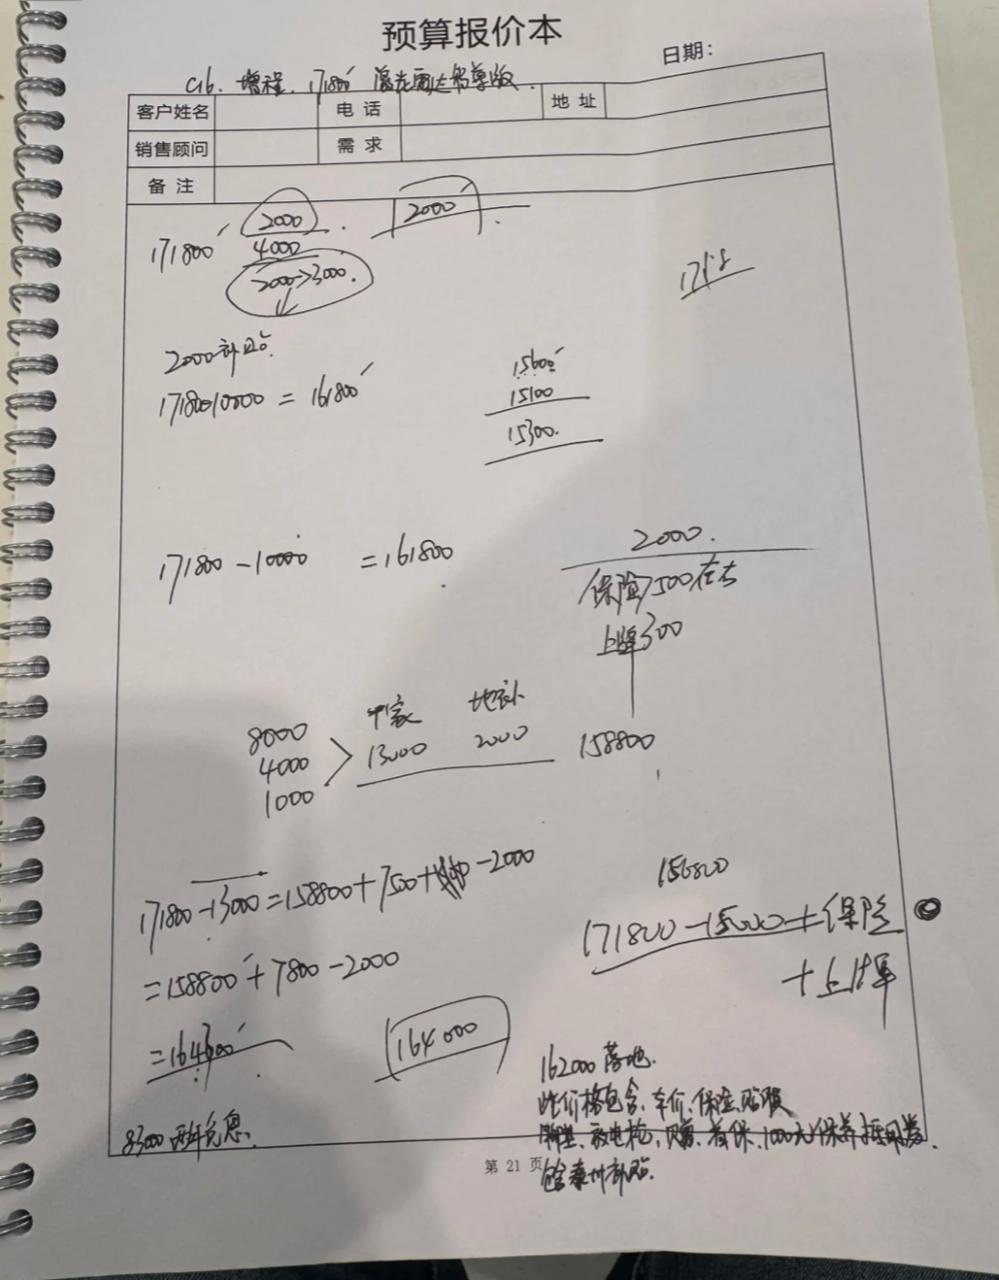 预算报价本
日期：
C16. 增程. 171800 激光雷达智享版.
客户姓名 电话 地址
销售顾问 需求
备注
2000 2000
171800 4000
2000->3000.
1718
2000补贴
15600
171800 10000 = 161800 15100
15300.
2000.
171800 - 10000 = 161800
保险7500左右
上牌300
厂家 地补
8000
4000 > 13000 2000 158800
1000
171800 - 13000 = 158800 + 7500 + -2000
156800
171800 - 15000 + 保险
= 158800 + 7800 - 2000
+ 上牌
= 164600 164000
162000 落地.
此价格包含、车价、保险、贴膜
脚垫、放电枪、首保、1000元保养抵用券.
包含泰州补贴.
83000 两年免息.
第 21 页